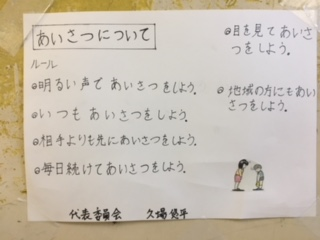 あいさつについて
ルール
◎明るい声であいさつをしよう。
◎いつもあいさつをしよう。
◎相手よりも先にあいさつをしよう。
◎毎日続けてあいさつをしよう。
◎目を見てあいさ
つをしよう。
◎地域の方にもあい
さつをしよう。
代表委員会 久場悠平